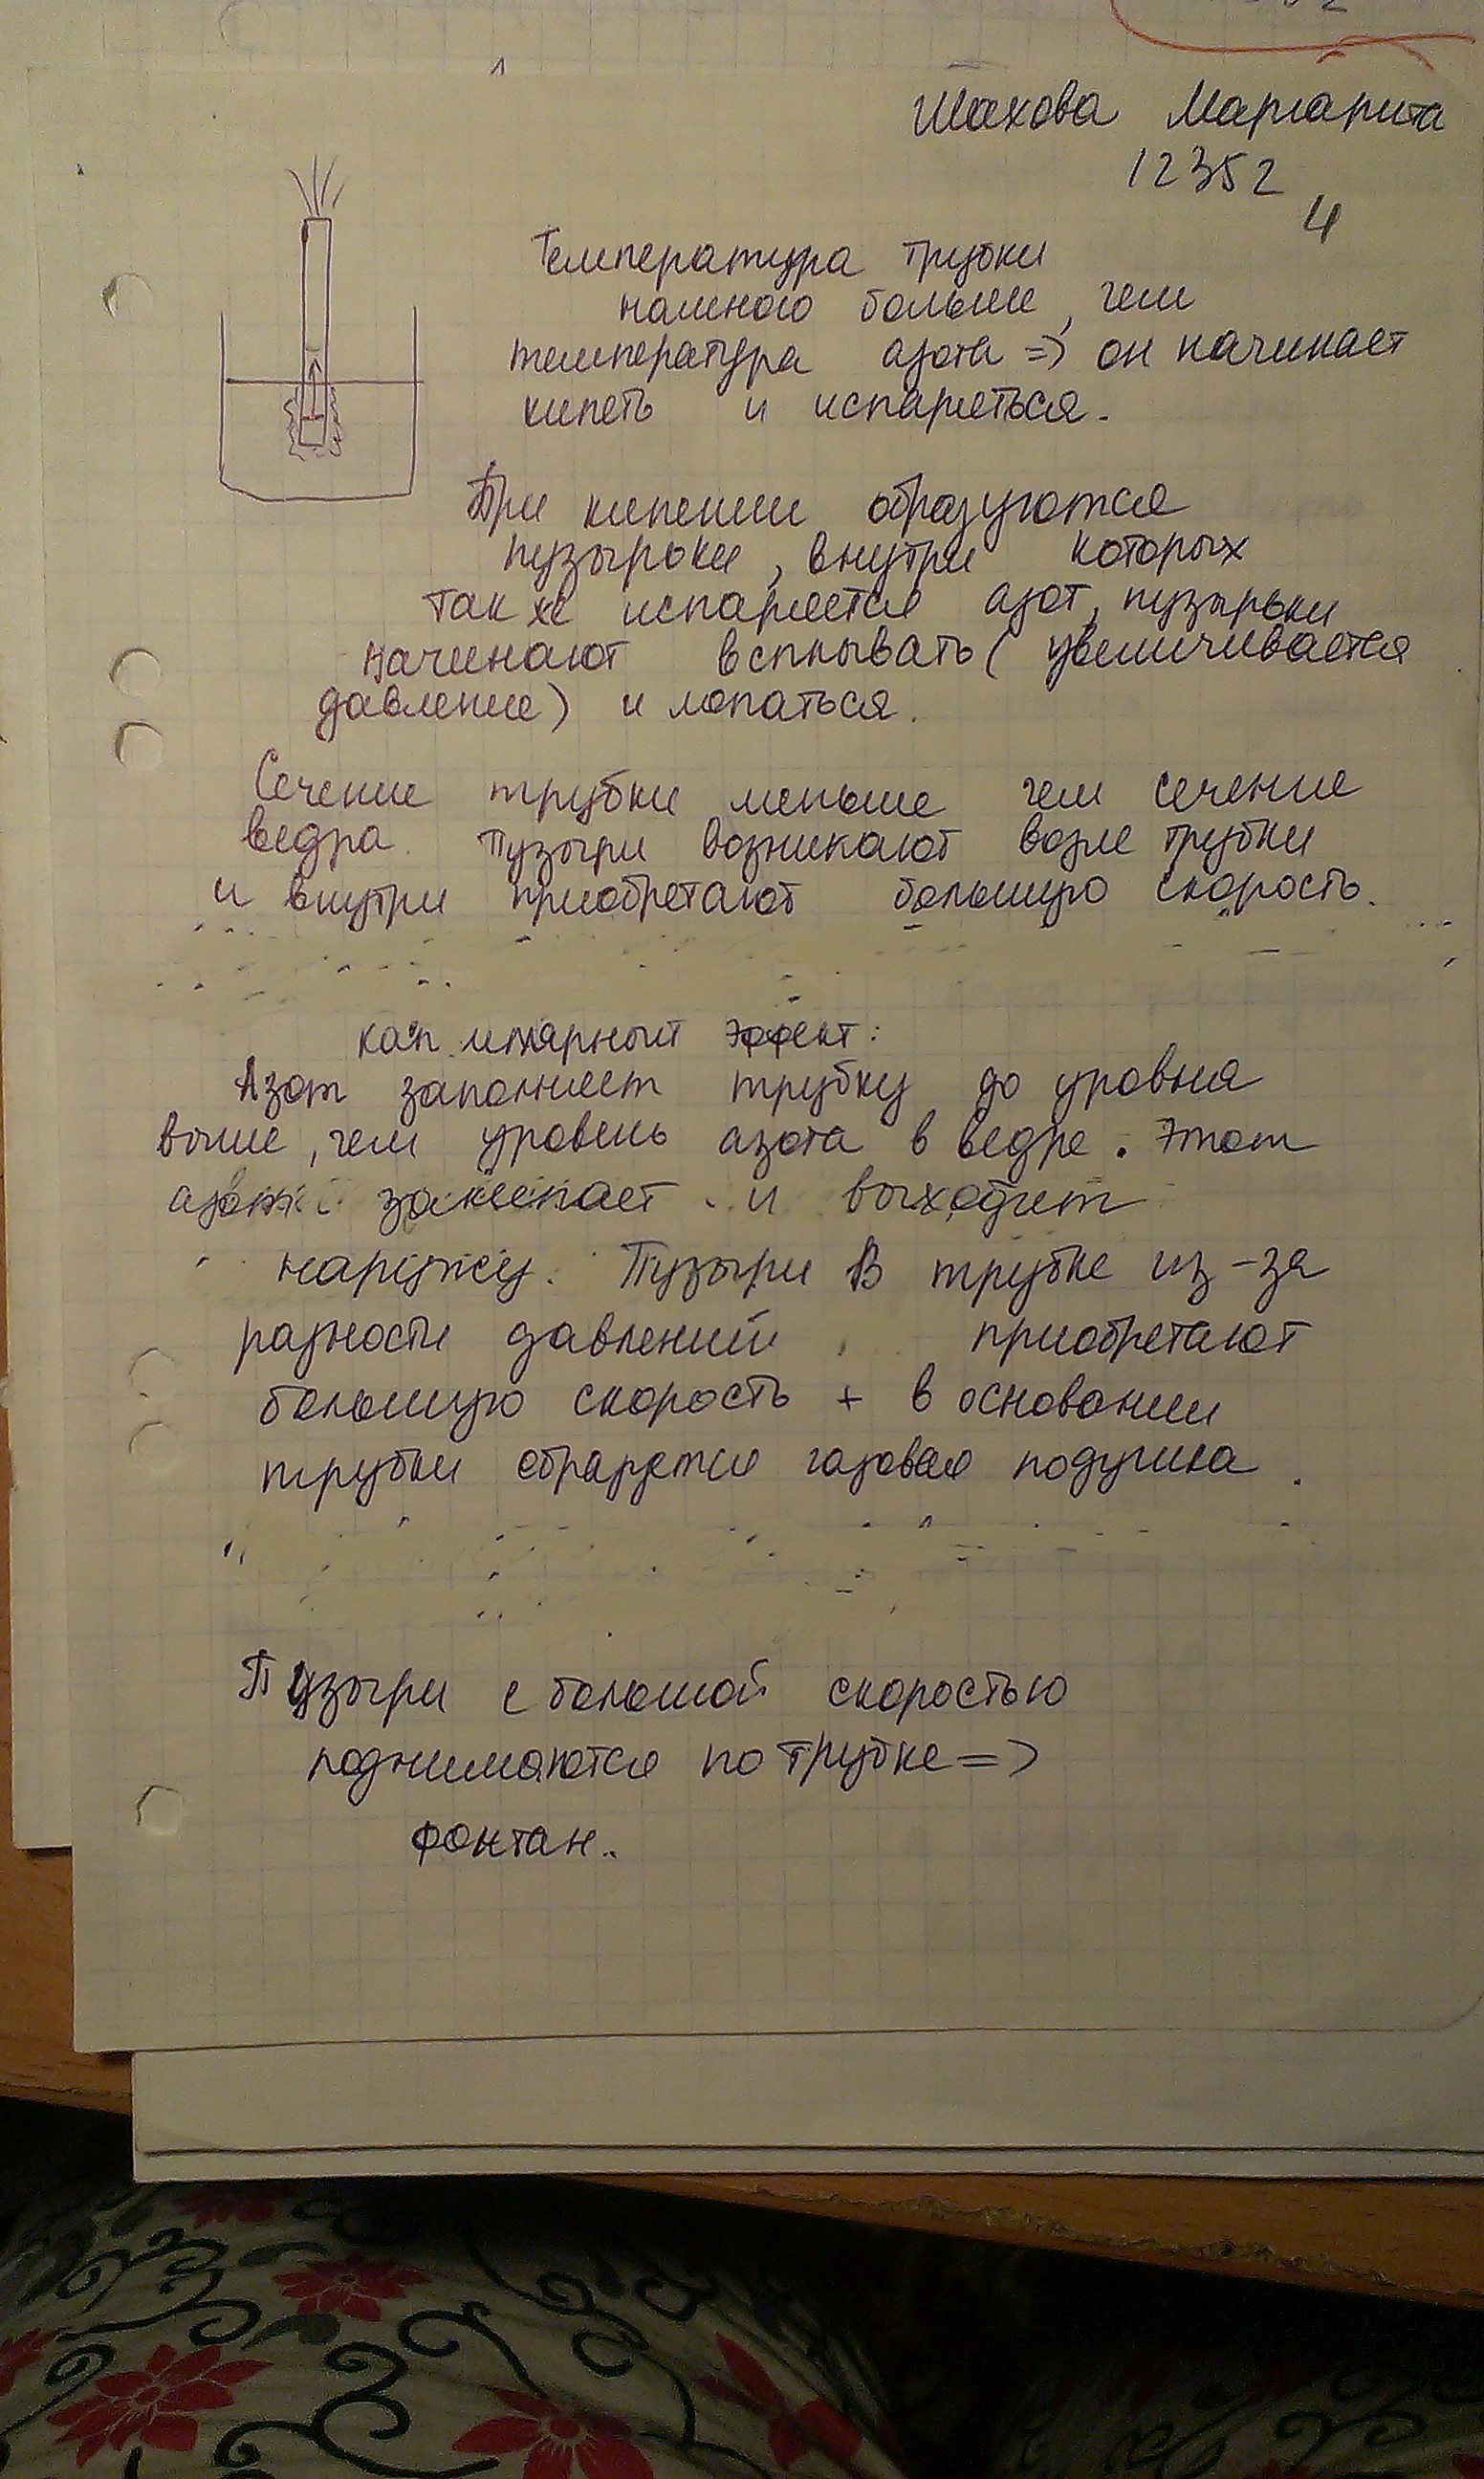 Шахова Маргарита
12352
4
Температура трубки
намного больше, чем
температура азота => он начинает
кипеть и испаряться.
При кипении образуются
пузырьки, внутри которых
так же испаряется азот, пузырьки
начинают всплывать (увеличивается
давление) и лопаться.
Сечение трубки меньше чем сечение
ведра. Пузыри возникают возле трубки
и внутри приобретают большую скорость.
капиллярный эффект:
Азот заполняет трубку до уровня
выше, чем уровень азота в ведре. Этот
азот закипает и выходит
наружу. Пузыри в трубке из-за
разности давлений приобретают
большую скорость + в основании
трубки образуется газовая подушка.
Пузыри с большой скоростью
поднимаются по трубке =>
фонтан.